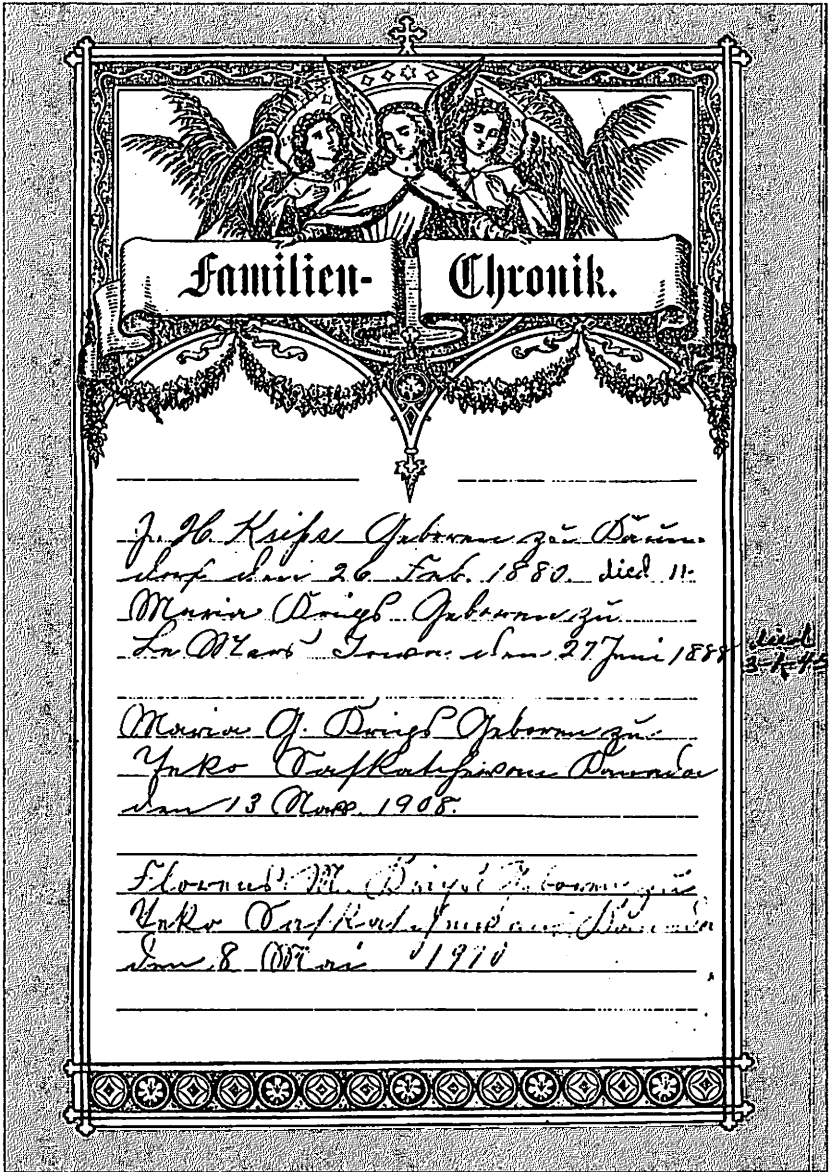 Familien- Chronik.
J. H. Geboren zu
den 26 Feb. 1880. died 11-
Maria Krigs Geboren zu
Le Mars Iowa den 27 Juni 188
died
Maria G. Krigs Geboren zu
Yeko Saskatchewan Kanada
den 13 Nov. 1908.
Florens M. Krigs Geboren zu
Yeko Kanada
den 8 Mai 1910